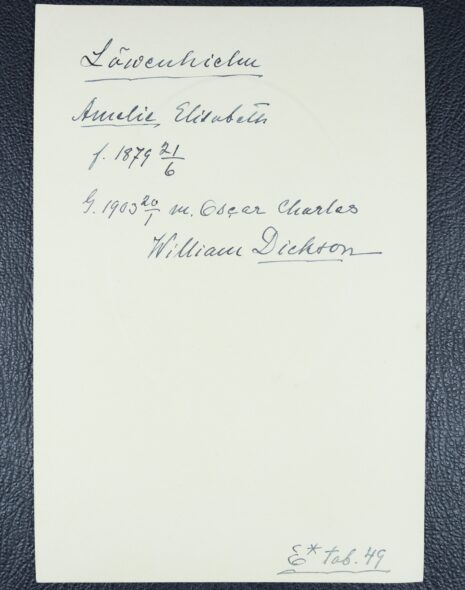 Löwenhielm
Amelie, Elisabeth
f. 1879 21/6
G. 1903 20/1 m. Oscar Charles
William Dickson
E* tab. 49